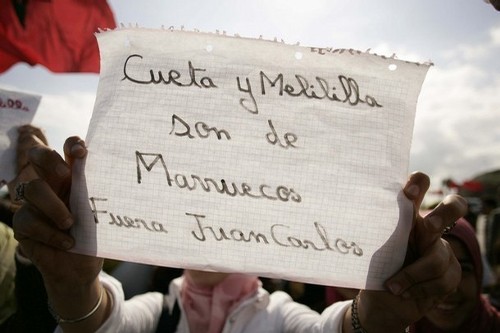 Cueta y Melilila
son de
Marruecos
Fuera Juan Carlos